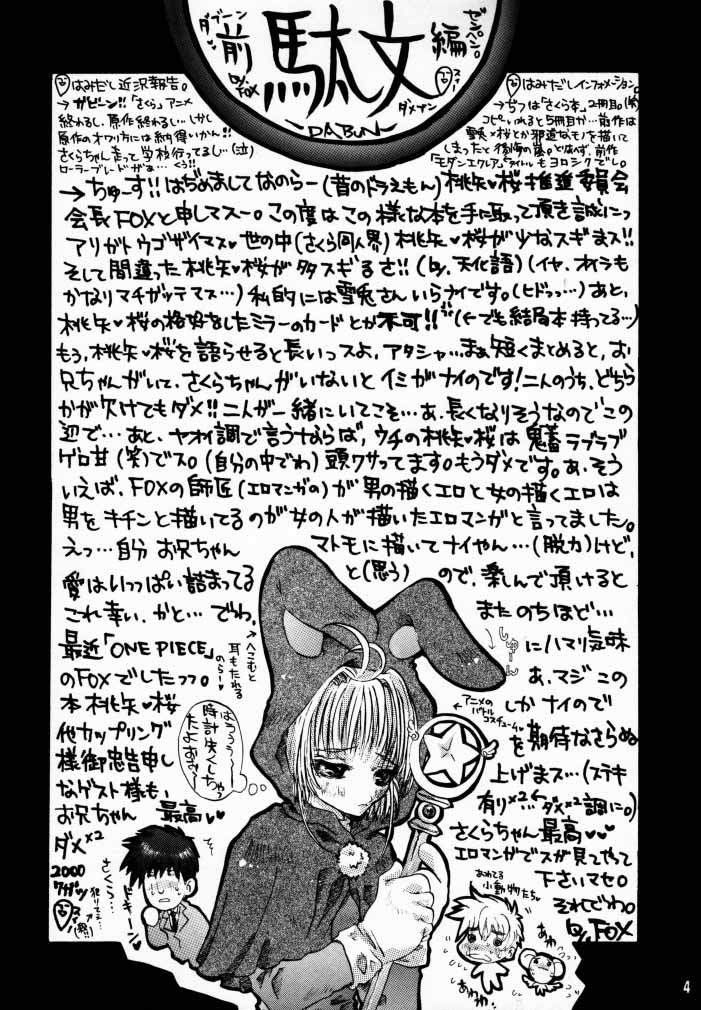 ダブーン
前
駄文
編
ゼンペン。
by. FOX
-DABUN-
ダメナン
はみだし近況報告。
→ガビーン!!「さくら」アニメ
終わるし、原作終わるし…しかし
原作のオワリ方には納得いかん!!
さくらちゃん走って学校行ってるし…(泣)
ローラーブレードがぁ…くぅ!!
はみだしインフォメーション。
コピいれると5冊目か…前作は
雪兎×桜とか邪道なモノを描いて
しまったと後悔の嵐。とはいえ、前作
「モダンエクレア」もヨロシクでし。
→ちゅーす!!はぢめましてなのらー(昔のドラえもん)桃矢♥桜推進委員会
会長FOXと申しマスー。この度はこの様な本を手に取って頂き誠にっ
アリガトウゴザイマス♥世の中(さくら同人界)桃矢♥桜が少なスギまス!!
そして間違った桃矢♥桜が多スギるさ!!(by.天化語)(イヤ、オイラも
かなりマチガッテマス…)私的には雪兎さんいらナイです。(ヒドっっ…)あと、
桃矢♥桜の格好をしたミラーのカードとか不可!!(←でも結局本持ってる…)
もう、桃矢♥桜を語らせると長いっスよ、アタシャ…まぁ短くまとめると、お
兄ちゃんがいて、さくらちゃんがいないとイミがナイのです!二人のうち、どちら
かが欠けてもダメ!!二人が一緒にいてこそ…あ、長くなりそうなのでこの
辺で…あと、ヤオイ調で言うならば、ウチの桃矢♥桜は鬼畜ラブラブ
ゲロ甘(笑)でス。(自分の中でわ)頭クサってます。もうダメです。あ、そう
いえば、FOXの師匠(エロマンガの)が男の描くエロと女の描くエロは
男をキチンと描いてるのが女の人が描いたエロマンガと言ってました。
えっ…自分 お兄ちゃん マトモに描いてナイやん…(脱力)けど、
愛はいっぱい詰まってる と(思う) ので、楽しんで頂けると
これ幸い、かと…でわ、 またのちほど…
最近「ONE PIECE」 にハマリ気味
のFOXでしたっっ。 あ、マジこの
本桃矢♥桜 しかナイので
他カップリング を期待なさらぬ
様御忠告申し 上げまス…(ステキ
なゲスト様も、 有り×2←ダメ×2調に。)
お兄ちゃん 最高♥ さくらちゃん最高♥♥
ダメ×2 エロマンガでスが見てやって
2000 下さいマセ。
それでわ。
by. FOX
→へこむと
耳もたれる
のらー♥
しゅーん
←アニメの
バトル
コスチューム♥
はううぅー
時計失くしちゃっ
たよおぉー
さくら…
ドキーン
あわてる
小動物たち。
あわわ
あわわ
4